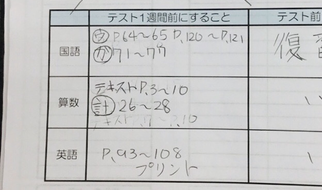 テスト1週間前にすること
テスト前
国語
ウ P.64～65 P.120～P.121
カ 71～77
復習
算数
テキストP.3～10
計 26～28
英語
P.93～108
プリント